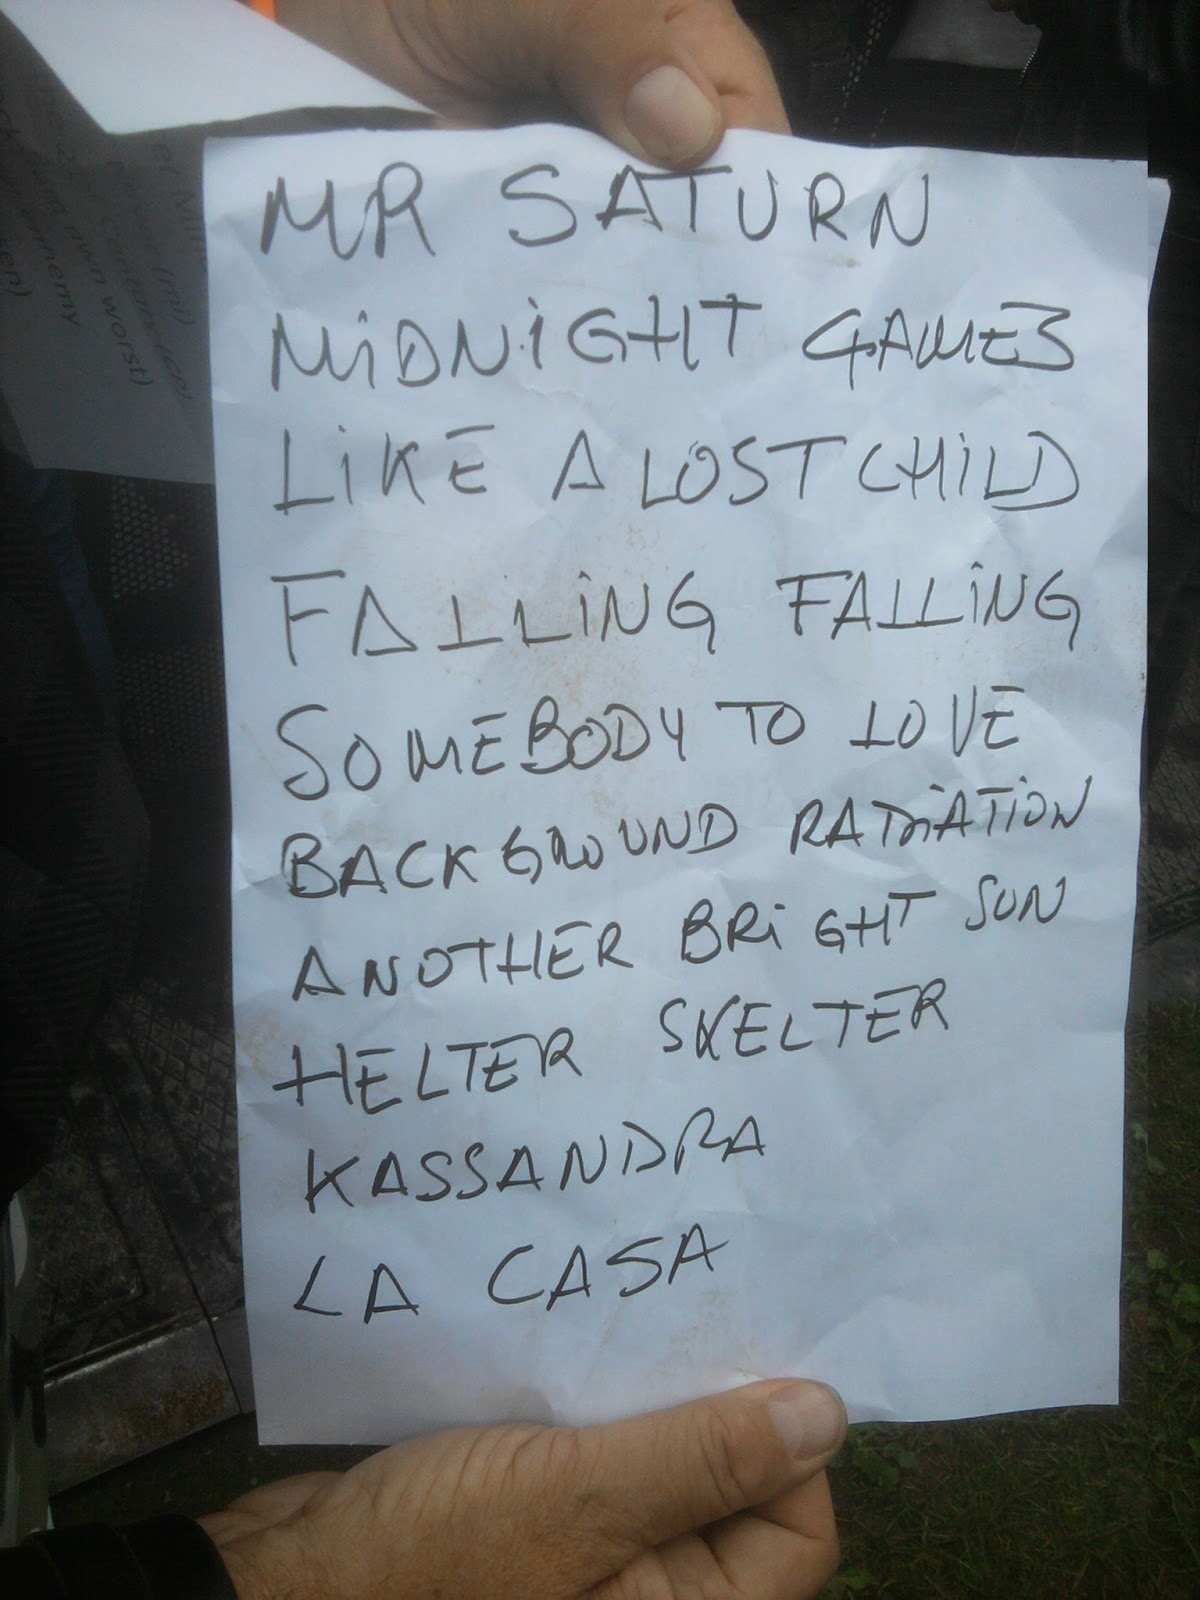 MR SATURN
MiDNiGHT GAMES
LiKE A LOST CHiLD
FALLiNG FALLiNG
SOMEBODY TO LOVE
BACKGROUND RADiATiON
ANOTHER BRiGHT SUN
HELTER SKELTER
KASSANDRA
LA CASA
own worst)